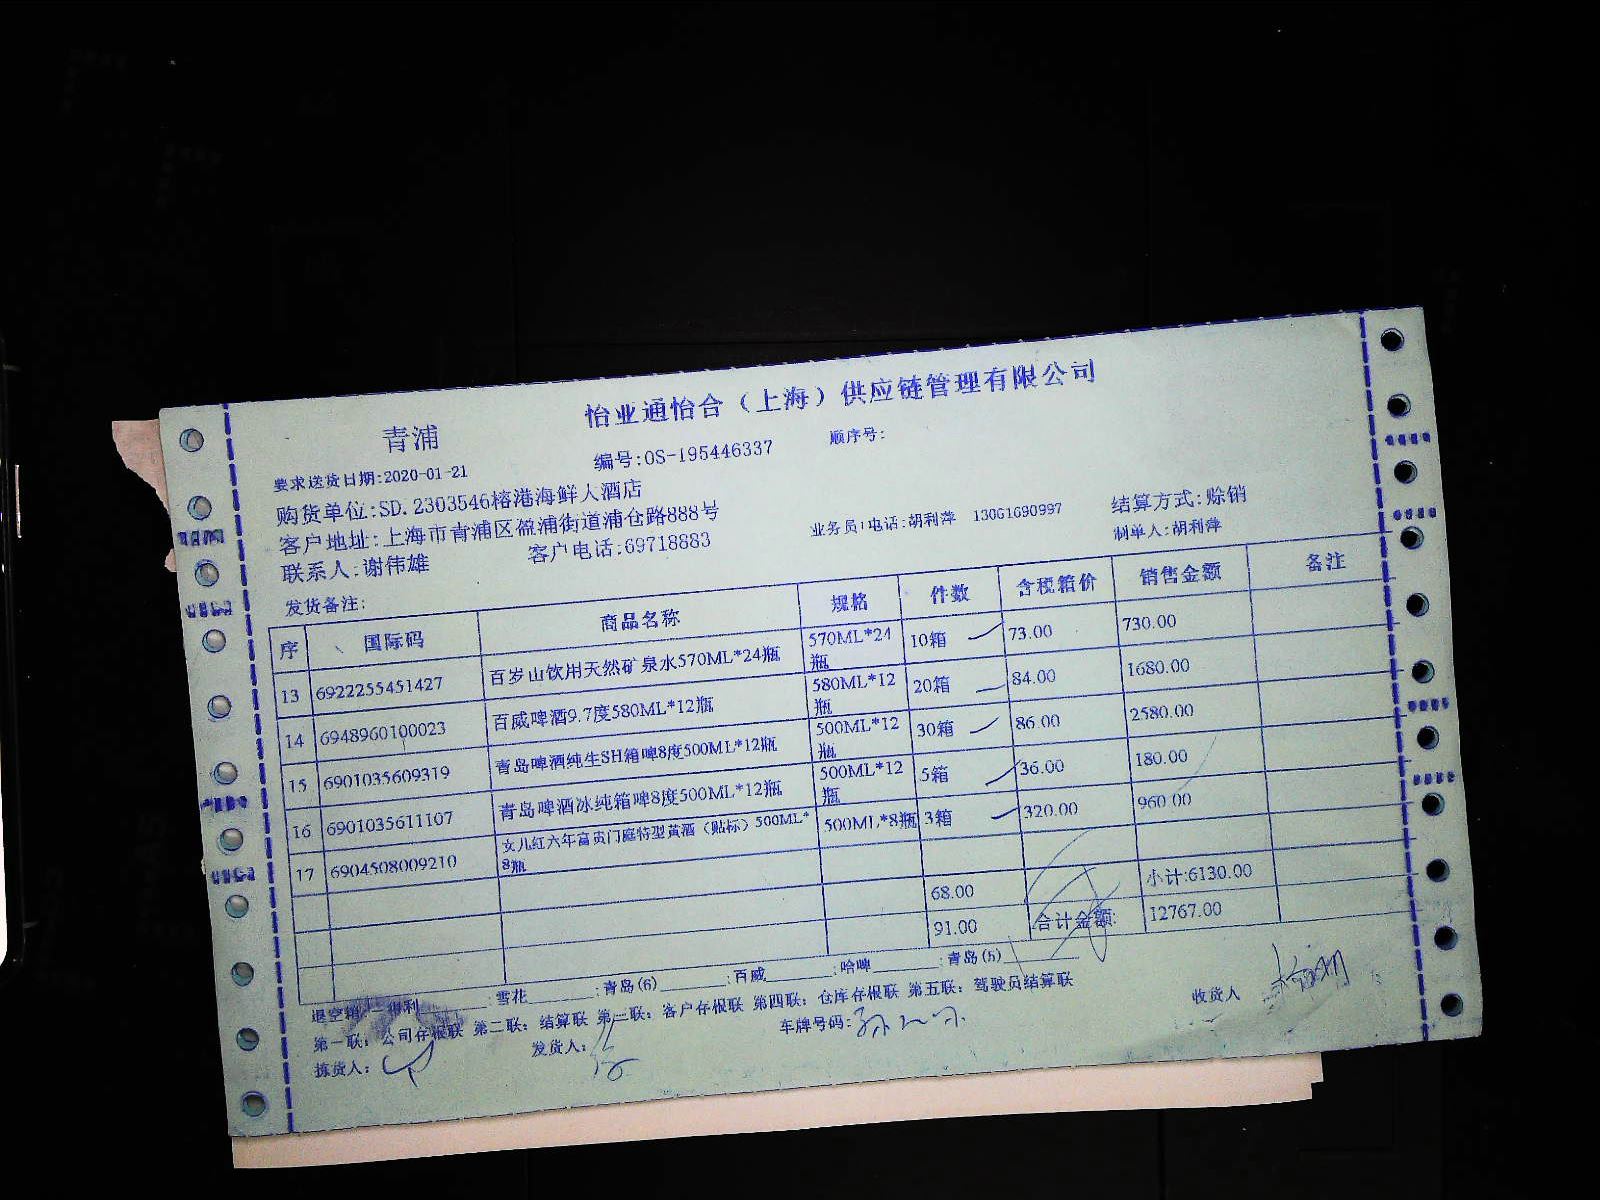 怡亚通怡合（上海）供应链管理有限公司
青浦
编号:OS-195446337
顺序号:
要求送货日期:2020-01-21
购货单位:SD.2303546榕港海鲜大酒店
客户地址:上海市青浦区盈浦街道浦仓路888号
业务员:电话:胡利萍 13061690997
结算方式:赊销
联系人:谢伟雄
客户电话:69718883
制单人:胡利萍
发货备注:
序 国际码 商品名称 规格 件数 含税箱价 销售金额 备注
13 6922255451427 百岁山饮用天然矿泉水570ML*24瓶 570ML*24瓶 10箱 73.00 730.00
14 6948960100023 百威啤酒9.7度580ML*12瓶 580ML*12瓶 20箱 84.00 1680.00
15 6901035609319 青岛啤酒纯生SH箱啤8度500ML*12瓶 500ML*12瓶 30箱 86.00 2580.00
16 6901035611107 青岛啤酒冰纯箱啤8度500ML*12瓶 500ML*12瓶 5箱 36.00 180.00
17 6904508009210 女儿红六年富贵门庭特型黄酒（贴标）500ML*8瓶 500ML*8瓶 3箱 320.00 960.00
68.00 小计:6130.00
91.00 合计金额: 12767.00
退空箱:得利______:雪花______:青岛(6)______:百威______:哈啤______:青岛(5)______
第一联：公司存根联 第二联：结算联 第三联：客户存根联 第四联：仓库存根联 第五联：驾驶员结算联
拣货人:
发货人:
车牌号码:
收货人